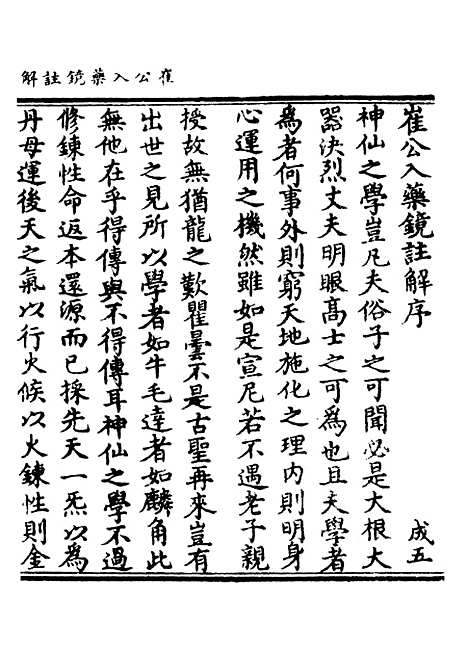 崔公入藥鏡註解
崔公入藥鏡註解序
成五
神仙之學豈凡夫俗子之可聞必是大根大
器決烈丈夫明眼髙士之可為也且夫學者
為者何事外則窮天地施化之理内則明身
心運用之機然雖如是宣尼若不遇老子親
授故無猶龍之歎瞿曇不是古聖再來豈有
出世之見所以學者如牛毛達者如麟角此
無他在乎得傳與不得傳耳神仙之學不過
修鍊性命返本還源而已採先天一炁以為
丹母運後天之氣以行火候以火鍊性則金